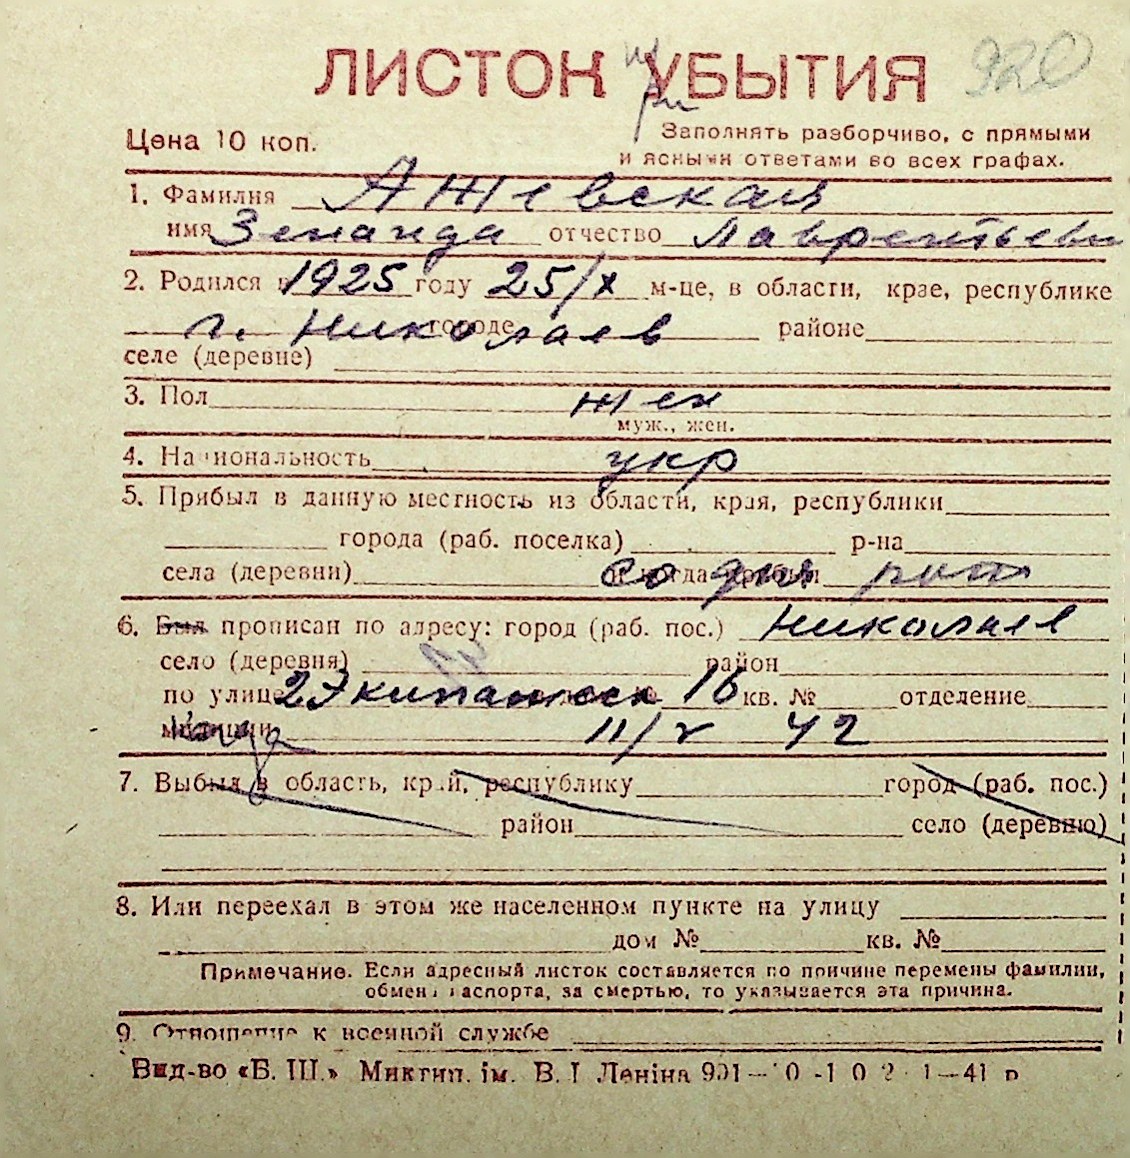 ЛИСТОК УБЫТИЯ
при
920
Цена 10 коп.
Заполнять разборчиво, с прямыми
и ясными ответами во всех графах.
1. Фамилия Ажевская
имя Зенаида отчество Лаврентьевн
2. Родился в 1925 году 25/X м-це, в области, крае, республике
городе г. Николаев районе
селе (деревне)
3. Пол жен
муж., жен.
4. Национальность укр
5. Прибыл в данную местность из области, края, республики
города (раб. поселка) р-на
села (деревни) и когда прибыл со дня рож
6. Был прописан по адресу: город (раб. пос.) Николаев
село (деревня) район
по улице 2 Экипажеск 16 кв. № отделение
милиции когда 11/V 42
7. Выбыл в область, край, республику город (раб. пос.)
район село (деревню)
8. Или переехал в этом же населенном пункте на улицу
дом № кв. №
Примечание. Если адресный листок составляется по причине перемены фамилии,
обмена паспорта, за смертью, то указывается эта причина.
9. Отношение к военной службе
Вид-во «Б. Ш.» Микгип. ім. В. І Леніна